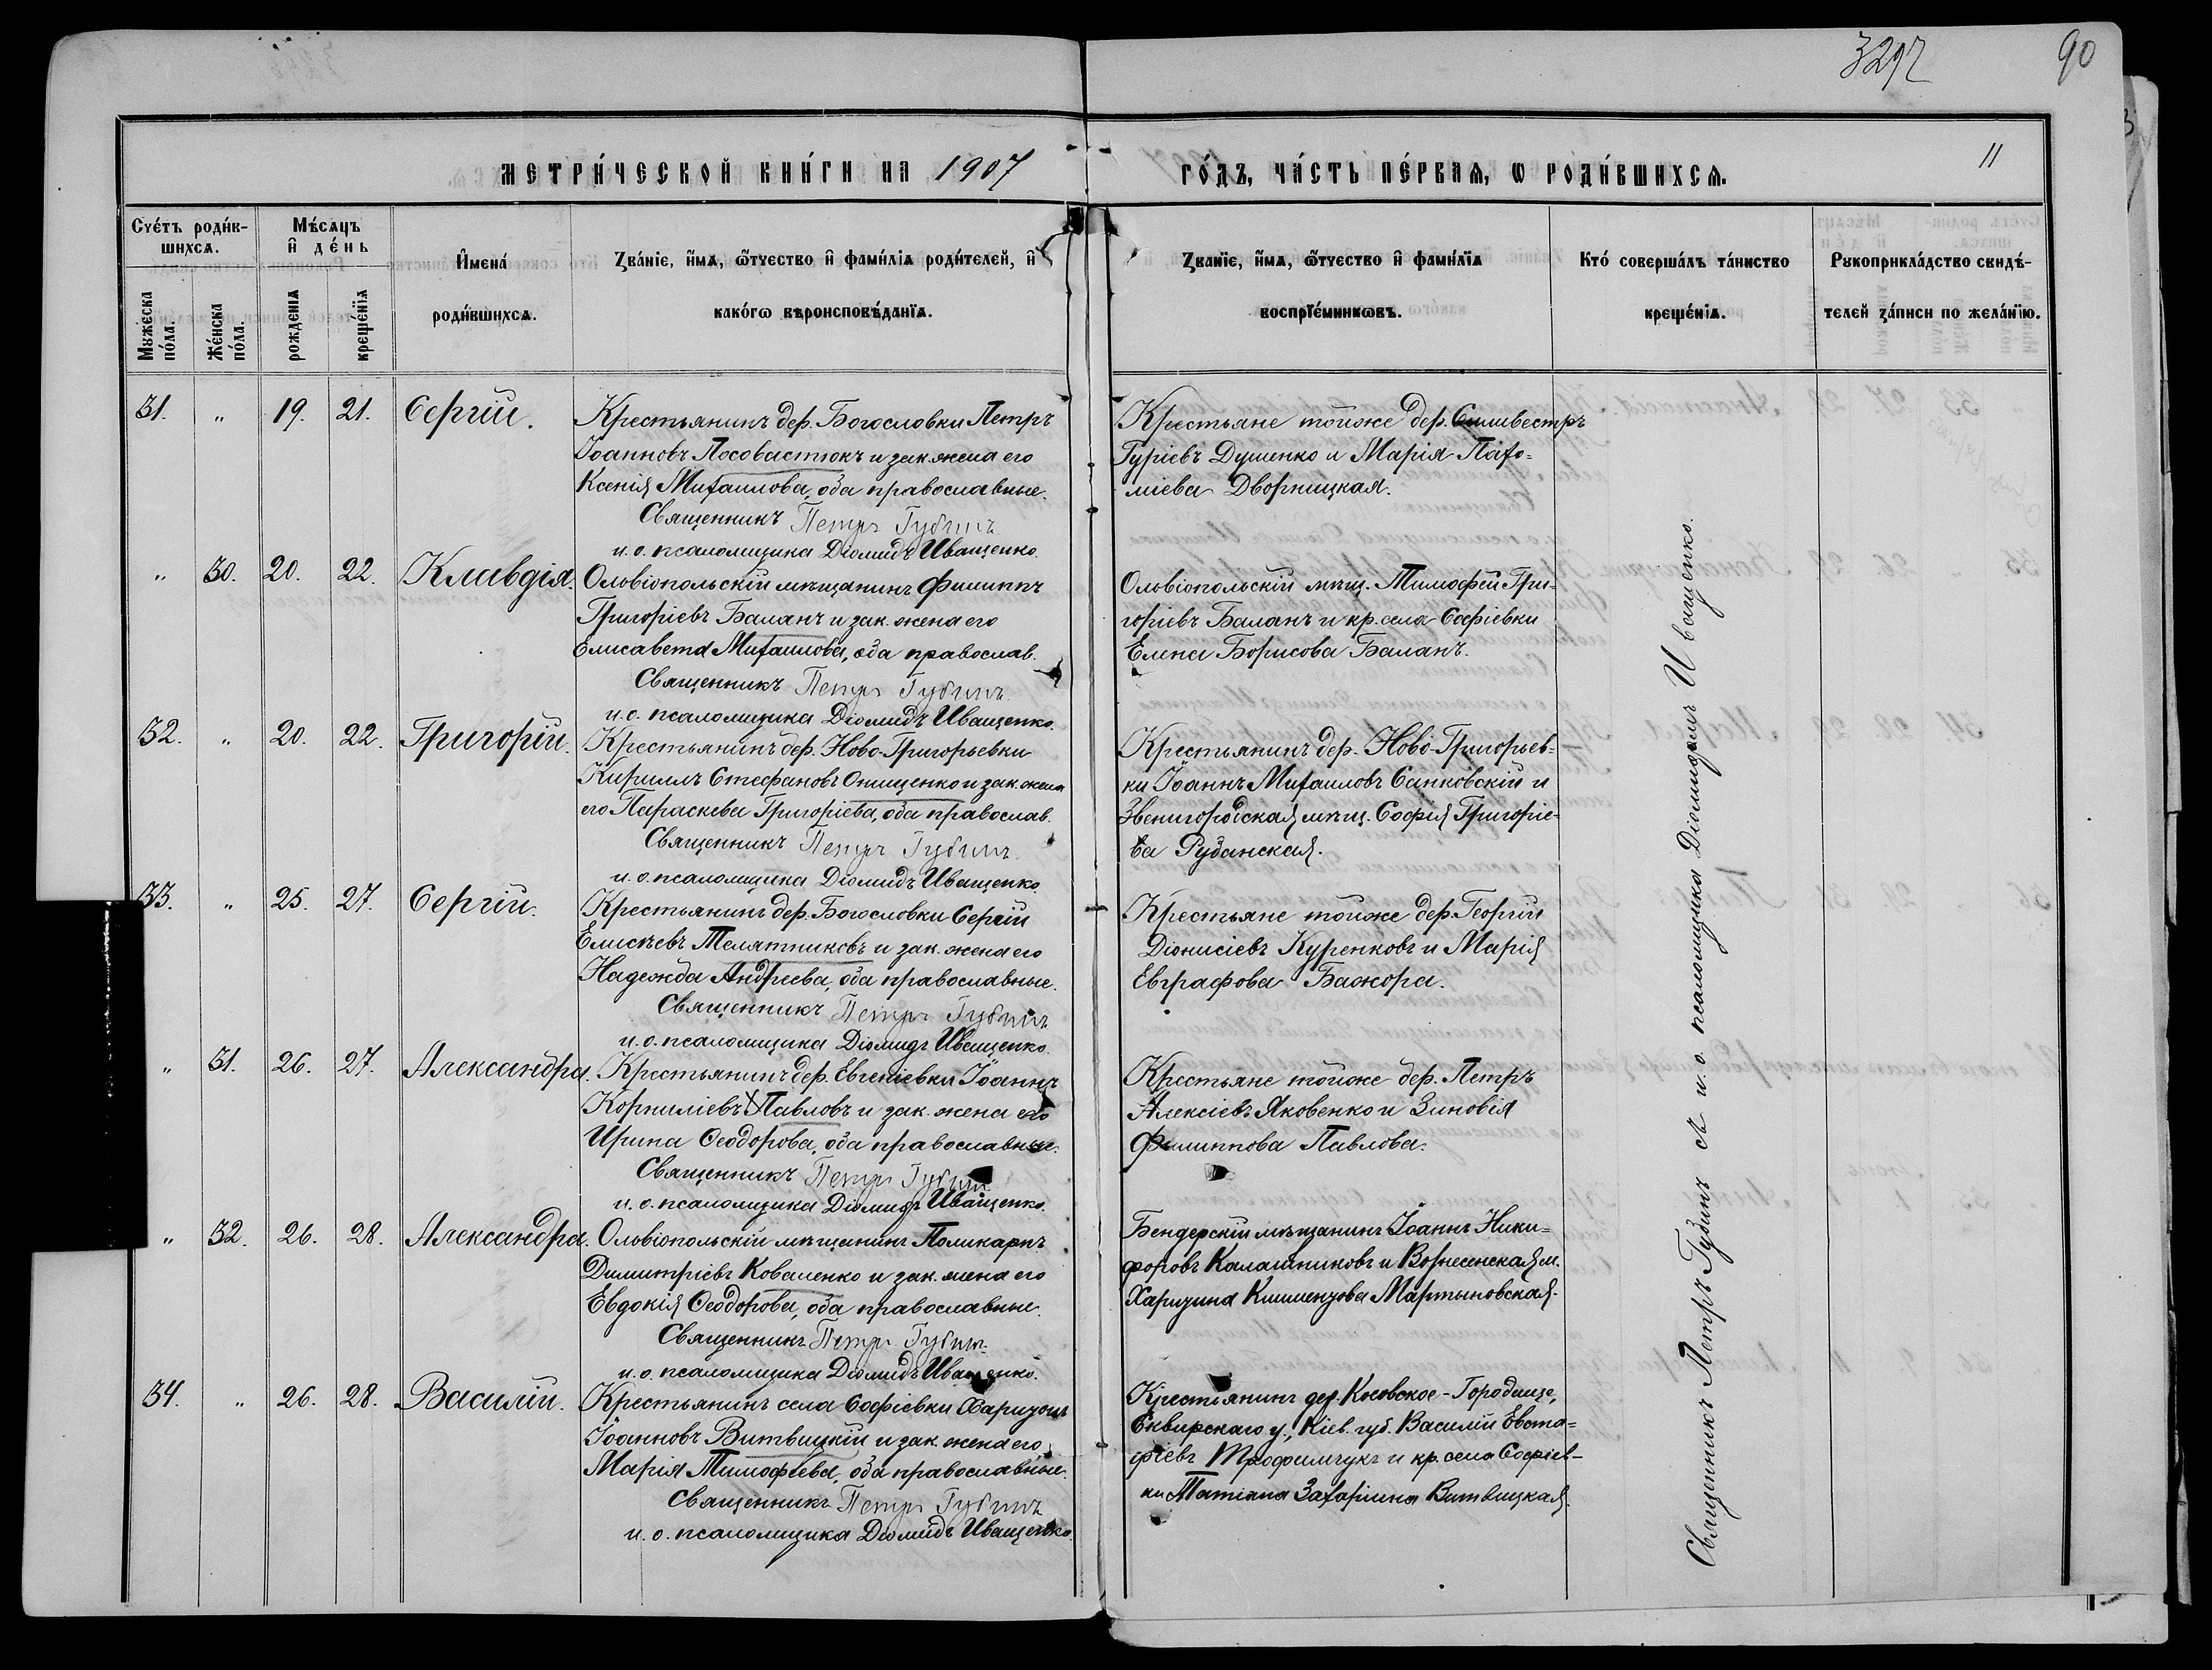 3297
90
11
МЕТРИ́ЧЕСКОЙ КНИ́ГИ НА 1907
ГО́ДЪ, ЧА́СТЬ ПЕ́РВАѦ, Ѡ РОДИ́ВШИХСѦ.
Сче́тъ роди́в-
шихсѧ.
Мꙋ́жеска по́ла.
Же́нска по́ла.
Мѣ́сѧцъ
и҆ де́нь
рожденїѧ
креще́нїѧ
И҆мена́
роди́вшихсѧ.
Зва́нїе, и҆́мѧ, ѻ҆́тчество и҆ фами́лїѧ роди́телей, и҆
како́гѡ вѣроисповѣ́данїѧ.
Зва́нїе, и҆́мѧ, ѻ҆́тчество и҆ фами́лїѧ
воспрїе́мникѡвъ.
Кто́ соверша́лъ та́инство
креще́нїѧ.
Рꙋкоприкла́дство свидѣ́-
телей за́писи по жела́нїю.
31. " 19. 21. Сергій.
Крестьянинъ дер. Богословки Петръ
Іоанновъ Пособастюкъ и зак. жена его
Ксенія Михаилова, оба православные.
Священникъ Петръ Губинъ
и. о. псаломщика Діомидъ Иващенко.
Крестьяне тойже дер. Сильвестръ
Гуріевъ Душенко и Марія Пахо-
міева Дворницкая.
" 30. 20. 22. Клавдія.
Ольвіопольскій мѣщанинъ Филиппъ
Григоріевъ Баланъ и зак. жена его
Елисавета Михаилова, оба православ.
Священникъ Петръ Губинъ
и. о. псаломщика Діомидъ Иващенко.
Ольвіопольскій мѣщ. Тимофей Гри-
горіевъ Баланъ и кр. села Софіевки
Елена Борисова Баланъ.
32. " 20. 22. Григорій.
Крестьянинъ дер. Ново-Григорьевки
Кириллъ Стефановъ Онищенко и зак. жена
его Параскева Григоріева, оба православ.
Священникъ Петръ Губинъ
и. о. псаломщика Діомидъ Иващенко
Крестьянинъ дер. Ново-Григорьев-
ки Іоаннъ Михаиловъ Санковскій и
Звенигородская мѣщ. Софія Григоріе-
ва Рубанская.
33. " 25. 27. Сергій.
Крестьянинъ дер. Богословки Сергій
Елисѣевъ Телятниковъ и зак. жена его
Надежда Андреева, оба православные.
Священникъ Петръ Губинъ
и. о. псаломщика Діомидъ Иващенко.
Крестьяне тойже дер. Георгій
Діонисіевъ Куренковъ и Марія
Евграфова Бажора.
" 31. 26. 27. Александра.
Крестьянинъ дер. Евгеніевки Іоаннъ
Корниліевъ Павловъ и зак. жена его
Ирина Ѳеодорова, оба православные.
Священникъ Петръ Губинъ
и. о. псаломщика Діомидъ Иващенко.
Крестьяне тойже дер. Петръ
Алексіевъ Яковенко и Зиновія
Филиппова Павлова.
" 32. 26. 28. Александра.
Ольвіопольскій мѣщанинъ Поликарпъ
Димитріевъ Коваленко и зак. жена его
Евдокія Ѳеодорова, оба православные.
Священникъ Петръ Губинъ
и. о. псаломщика Діомидъ Иващенко.
Бендерскій мѣщанинъ Іоаннъ Ники-
форовъ Калашниковъ и Вознесенская м.
Харитина Климентова Мартыновская.
34. " 26. 28. Василій.
Крестьянинъ села Софіевки Харитонъ
Іоанновъ Витвицкій и зак. жена его
Марія Тимофеева, оба православные.
Священникъ Петръ Губинъ
и. о. псаломщика Діомидъ Иващенко.
Крестьянинъ дер. Косовское-Городище,
Сквирскаго у., Кіев. губ. Василій Евста-
фіевъ Трофимчукъ и кр. села Софіев-
ки Татіана Захаріина Витвицкая.
Священникъ Петръ Губинъ съ и. о. псаломщика Діомидомъ Иващенко.